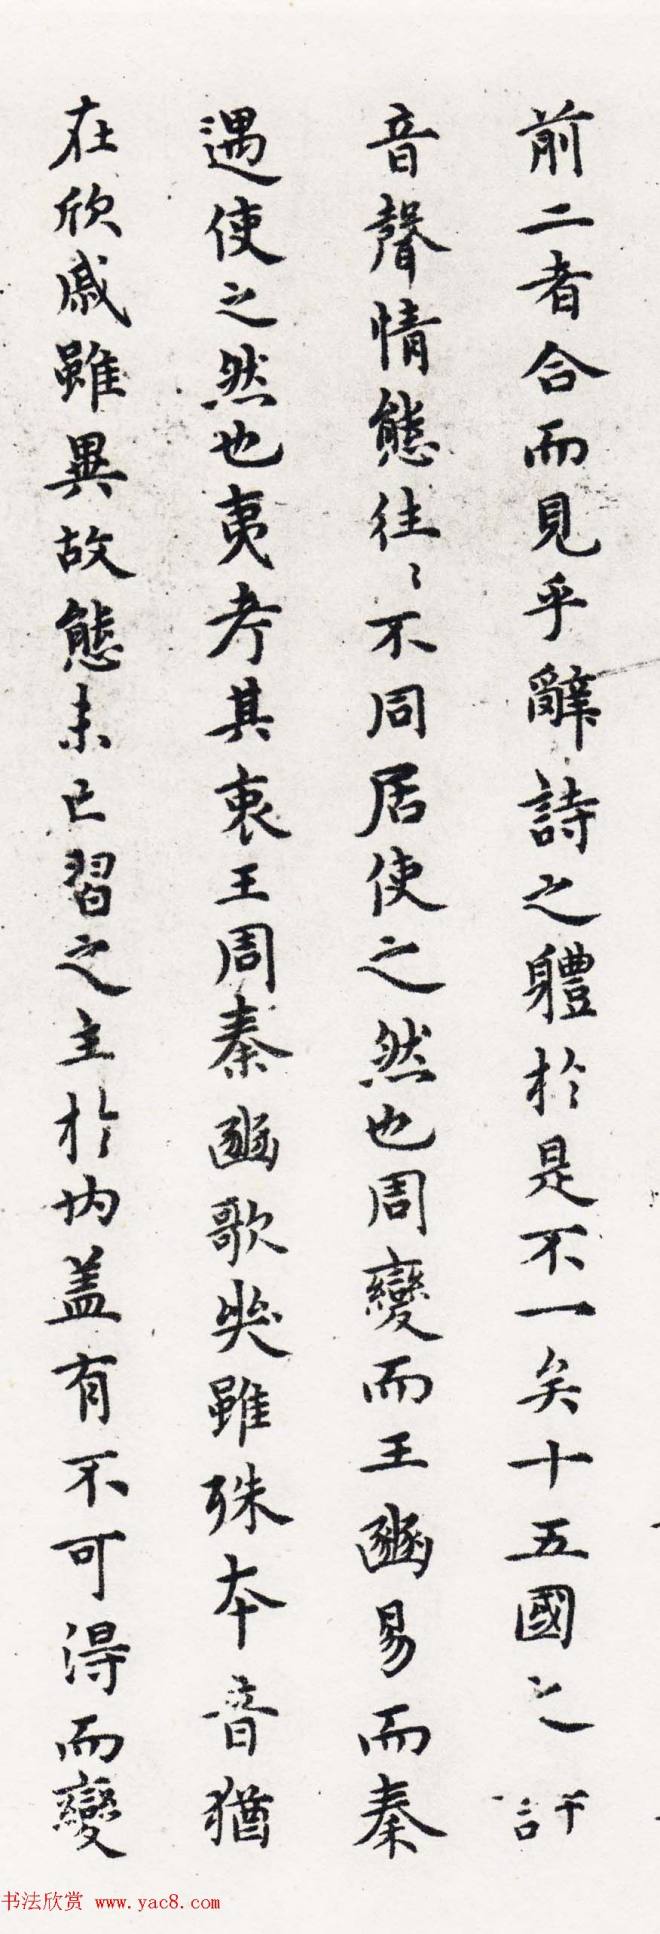 前二者合而見乎辭詩之軆於是不一矣十五國之詩
音聲情態往〻不同居使之然也周變而王豳易而秦
遇使之然也夷考其衷王周秦豳歌哭雖殊本音猶
在欣戚雖異故態未已習之主於内盖有不可得而變
书法欣赏 www.yac8.com